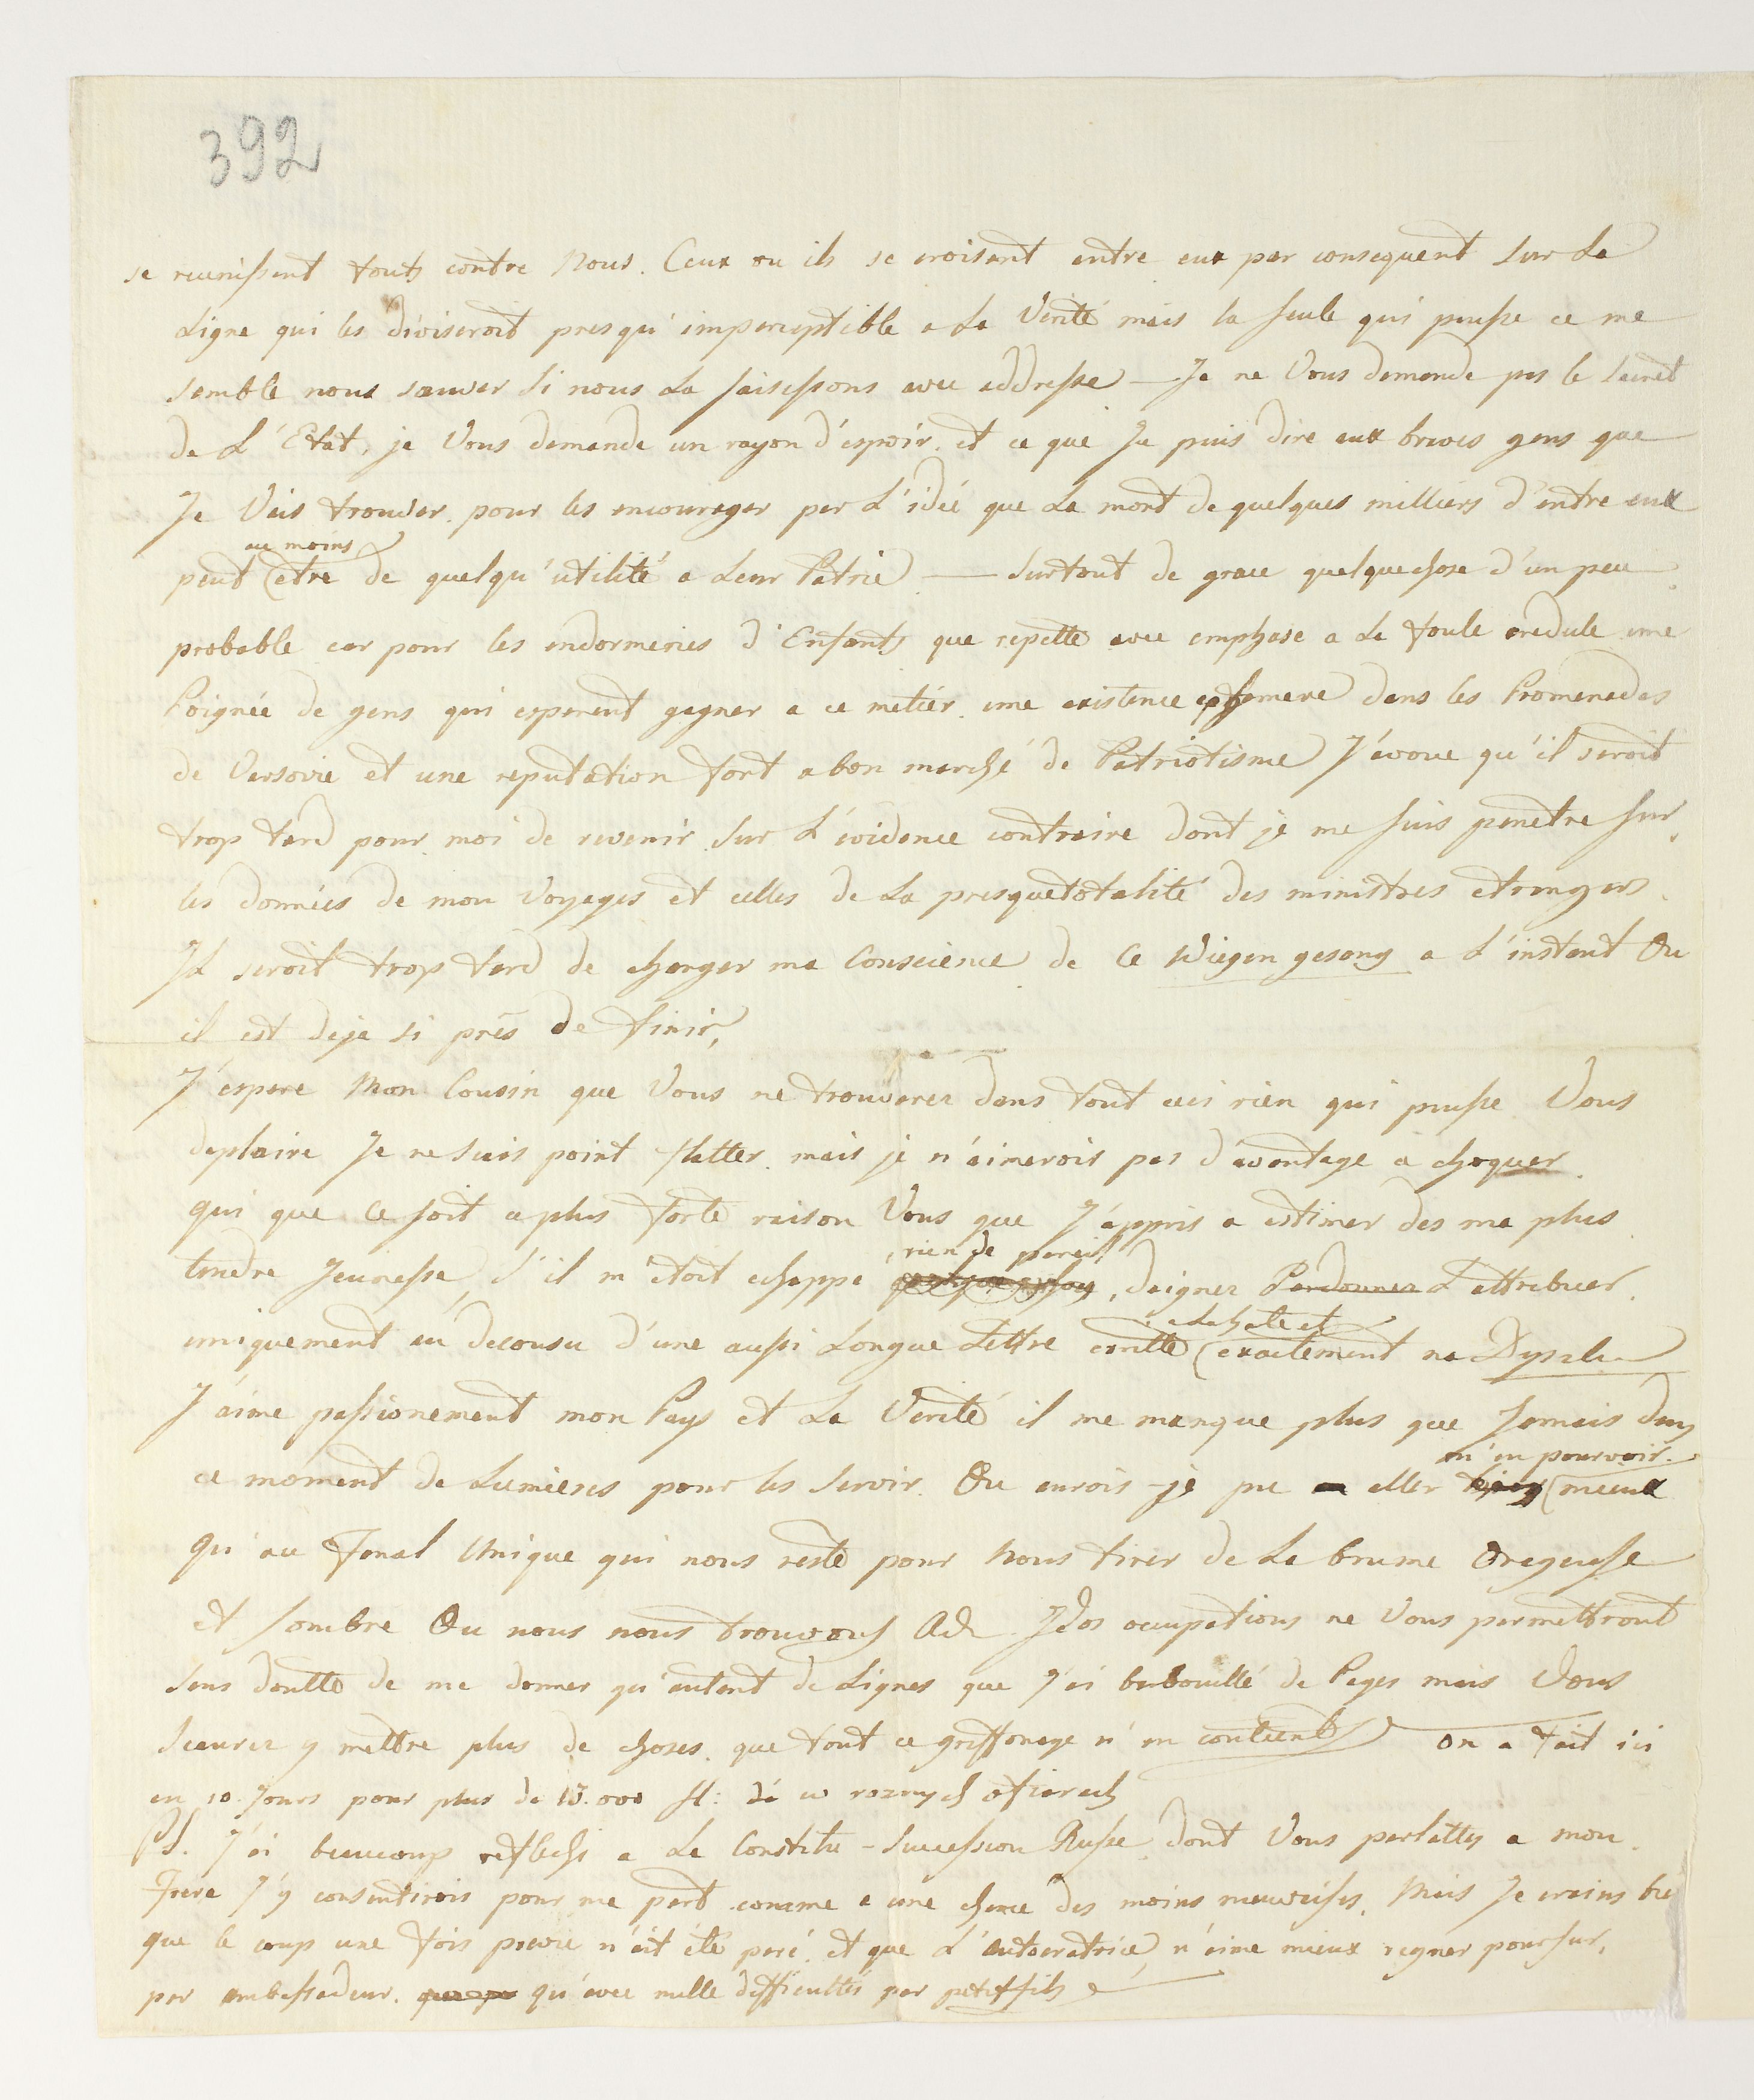 392
se reunissent touts contre Nous. Ceux ou ils se croisent entre eux par consequent sur La
Ligne qui les diviseroit presqu'imperceptible a La Verité mais la seule qui puisse ce me
semble nous sauver si nous La saisissons avec addresse — Je ne Vous demande pas le secret
de L'Etat, je Vous demande un rayon d'espoir, et ce que Je puis dire aux braves gens que
Je Vais trouver pour les encourager par L'idée que La mort de quelques milliers d'entre eux
au moins
peut etre de quelqu'utilité a Leur Patrie — surtout de grace quelquechose d'un peu
probable car pour les endormeries d'Enfants que repette avec emphase a La foule credule une
Poignée de gens qui esperent gagner a ce metiér une existence ephemere dans les Promenades
de Varsovie et une reputation fort a bon marché de Patriotisme J'avoue qu'il seroit
trop tard pour moi de revenir sur L'évidence contraire dont je me suis penetre sur
les données de mon Voyages et celles de La presquetotalité des ministres etrangers.
Il seroit trop tard de charger ma Conscience de Ce Wiegen gesang a L'instant Ou
il est deja si près de finir,
J'espere Mon Cousin que Vous ne trouverez dans tout ceci rien qui puisse Vous
deplaire Je ne sais point flatter mais je n'aimerois pas d'avantage a choquer
qui que Ce soit a plus forte raison Vous que J'appris a estimer des ma plus
rien de pareil
tendre Jeunesse, s'il m'étoit echappé quelque chose, daignez Pardonner L'attribuer
uniquement au decousu d'une aussi Longue Lettre ecritte exactement na Dyszlu
a La hate et
J'aime passionement mon Pays et La Verité il me manque plus que Jamais dans
m'en pourvoir
ce moment de Lumieres pour les servir. Ou aurois-je pu aller mieux
qu'au Fanal Unique qui nous reste pour Nous tirer de La brume Orageuse
et sombre Ou nous nous trouvons Vos occupations ne Vous permettront
sans doutte de me donner qu'autant de Lignes que J'ai barbouillé de Pages mais Vous
scaurez y mettre plus de choses que tout ce griffonage n'en contient On a fait ici
en 10. Jours pour plus de 15.000 fl: dé w roznych ofiarach
PS. J'ai beaucoup reflechi a La Constitu-Succession Russe dont Vous parlattes a mon
Frere J'y consentirois pour ma part comme a une chance des moins mauvaises, Mais Je crains
que le coup une fois prevu n'ait été paré et que L'Autocratrice n'aime mieux regner poursur,
par ambassadeur qu'avec mille difficultés par petitfils